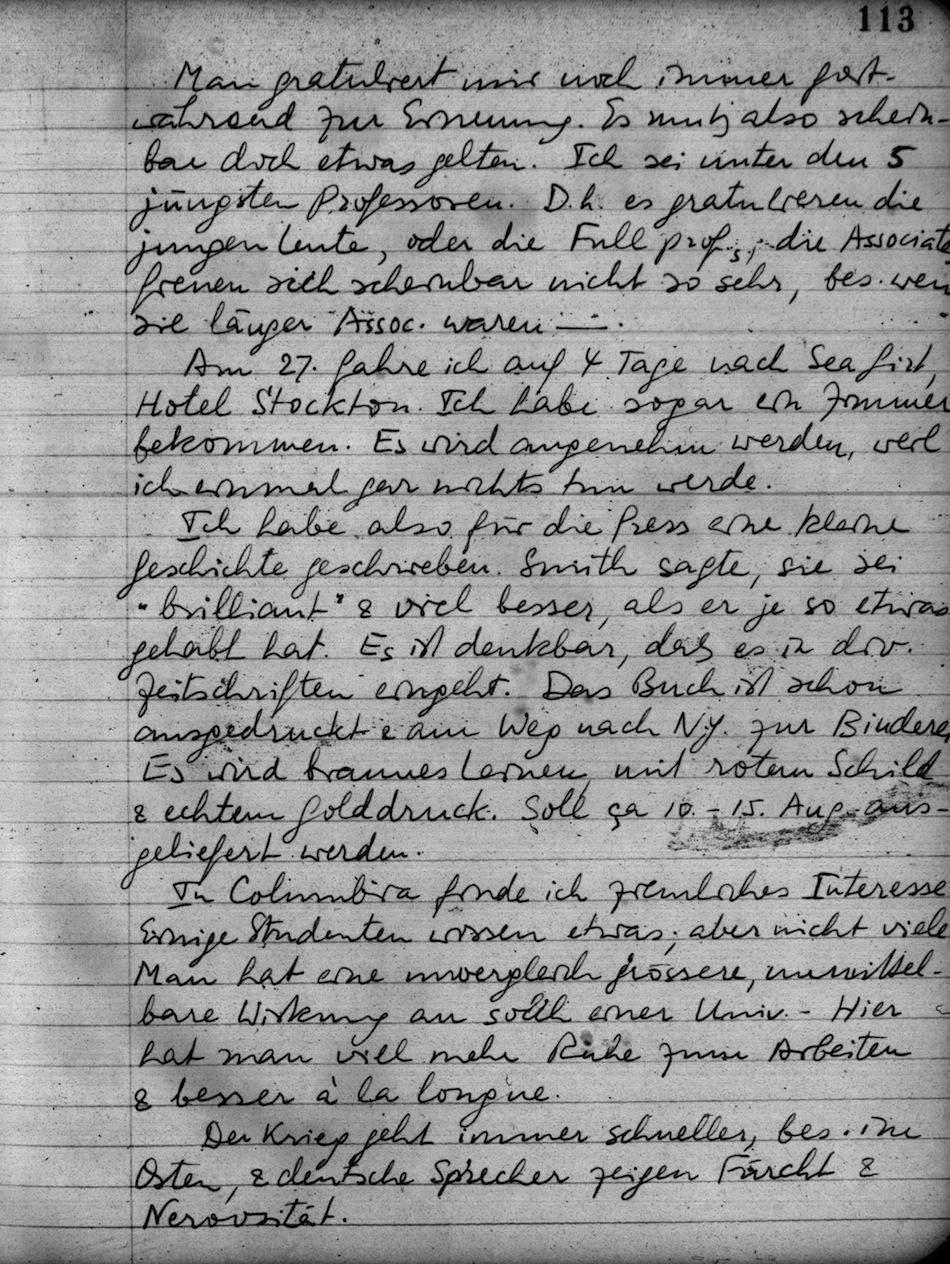 113
Man gratuliert mir noch immer fort-
während zur Ernennung. Es muß also schein-
bar doch etwas gelten. Ich sei unter den 5
jüngsten Professoren. D.h. es gratulieren die
jungen Leute, oder die Full profs; die Associate
freuen sich scheinbar nicht so sehr, bes. wen
sie länger Assoc. waren —.
Am 27. fahre ich auf 4 Tage nach Sea Girt,
Hotel Stockton. Ich habe sogar ein Zimmer
bekommen. Es wird angenehm werden, weil
ich einmal gar nichts tun werde.
Ich habe also für die Press eine kleine
Geschichte geschrieben. Smith sagte, sie sei
"brilliant" & viel besser, als er je so etwas
gehabt hat. Es ist denkbar, daß es in div.
Zeitschriften eingeht. Das Buch ist schon
ausgedruckt & am Weg nach N.Y. zur Binderei
Es wird braunes Leinen, mit rotem Schild
& echtem Golddruck. Soll ça 10.–15. Aug. aus-
geliefert werden.
In Columbia finde ich ziemliches Interesse
Einige Studenten wissen etwas; aber nicht viele
Man hat eine unvergleich grössere, unmittel-
bare Wirkung an solch einer Univ. – Hier
hat man viel mehr Ruhe zum Arbeiten
& besser à la longue.
Der Krieg geht immer schneller, bes. im
Osten, & deutsche Sprecher zeigen Furcht &
Nervosität.